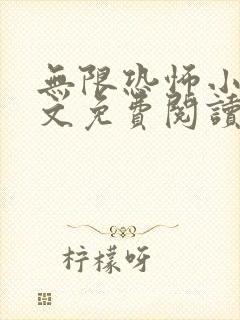 無限恐怖小
文免費閱讀
柠檬呀